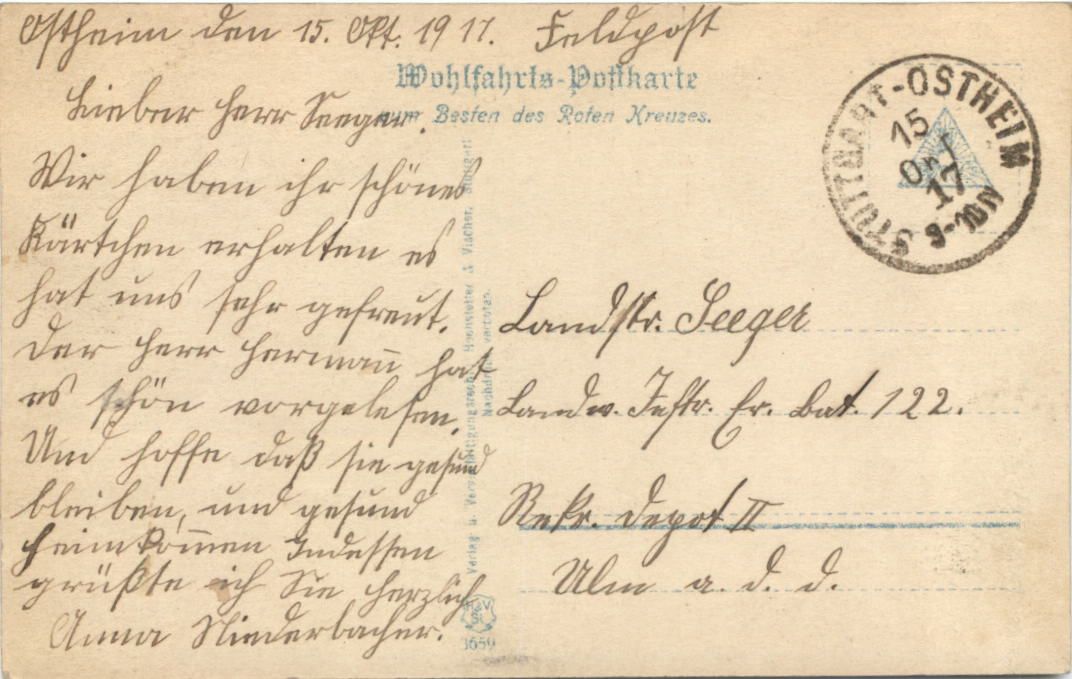 Ostheim den 15. Okt. 1917. Feldpost
Wohlfahrts-Postkarte
zum Besten des Roten Kreuzes.
Lieber Herr Seeger.
Wir haben ihr schönes
Kärtchen erhalten es
hat uns sehr gefreut.
Der Herr Hermann hat
es schön vorgelesen.
Und hoffe daß sie gesund
bleiben, und gesund
heimkommen Indessen
grüßte ich Sie herzlich
Anna Niederbacher.
Verlag u. Vervielfältigungsrecht: Hochstetter & Vischer, Stuttgart
Nachdruck verboten.
H&V
St
3659
STUTTGART-OSTHEIM
15
Okt
17
9-10 N
Landstr. Seeger
Landw. Inftr. Er. Bat. 122.
Rekr. Depot II
Ulm a. d. d.